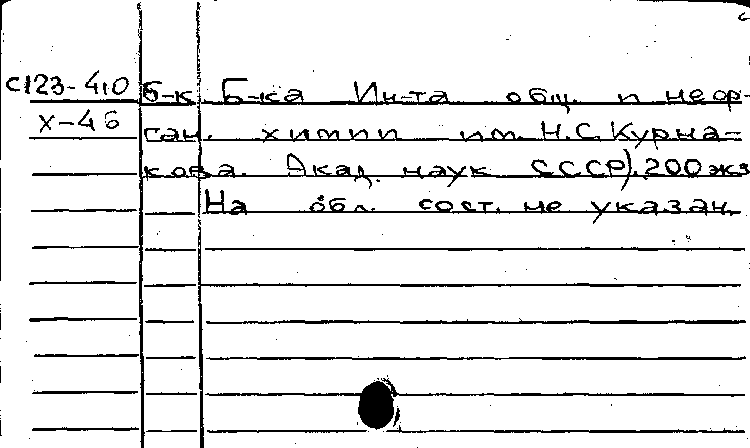 С123-4,0
Х-46
б-к. Б-ка Ин-та общ. и неор-
ган. химии им. Н.С. Курна-
кова. Акад. наук СССР). 200 экз
На обл. сост. не указан.